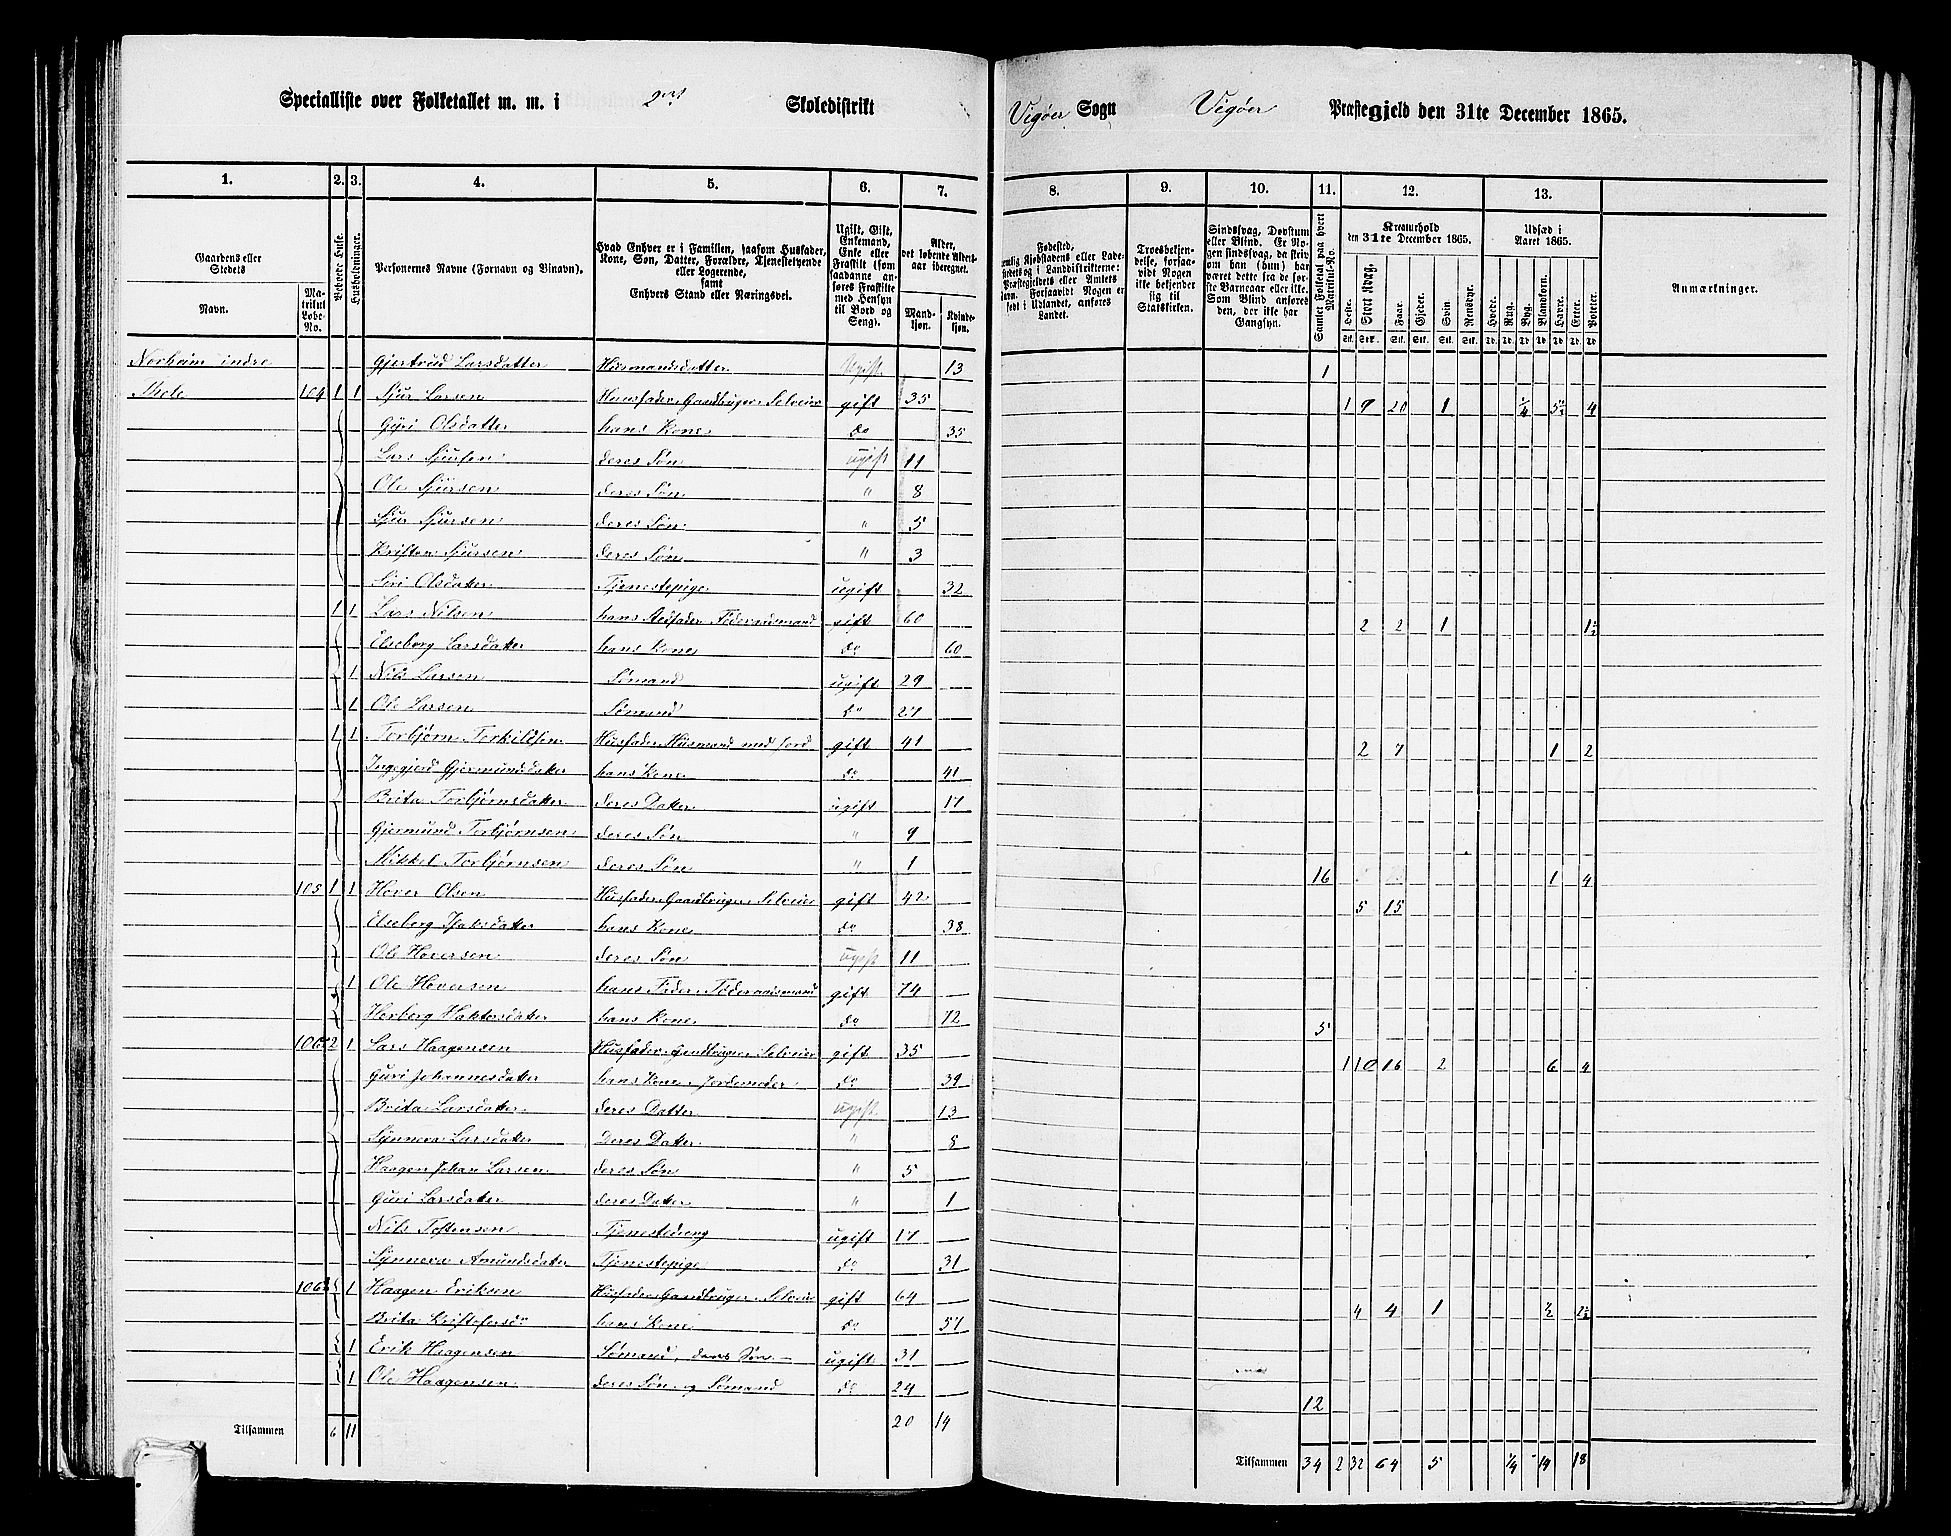 Specialliste over Folketallet m. m. i 2det Skoledistrikt Vigøer Sogn Vigøer Præstegjeld den 31te December 1865.
1. 2. 3. 4. 5. 6. 7. 8. 9. 10. 11. 12. 13.
Gaardens eller Stedets
Navn. Matrikul Løbe-No.
Beboede Huse.
Husholdninger.
Personernes Navne (Fornavn og Vinavn).
Hvad Enhver er i Familien, saasom Husfader, Kone, Søn, Datter, Forældre, Tjenestetyende eller Logerende, samt Enhvers Stand eller Næringsvei.
Ugift, Gift, Enkemand, Enke eller Fraskilt (som saadanne anføres Fraskilte med Hensyn til Bord og Seng).
Alder, det løbende Aldersaar iberegnet.
Mandkjøn. Kvindekjøn.
Fødested,
Troesbekjendelse, forsaavidt Nogen ikke bekjender sig til Statskirken.
Sindssvag, Døvstum eller Blind. Er Nogen sindssvag, da skrives om han (hun) har været dette fra de første Barneaar eller ikke. Som Blind anføres den, der ikke har Gangsyn.
Samlet Folketal paa hvert Matrikul-No.
Kreaturhold den 31te December 1865.
Heste. Stort Kvæg. Faar. Gjeder. Svin. Rensdyr.
Udsæd i Aaret 1865.
Hvede. Rug. Byg. Blandkorn. Havre. Erter. Poteter.
Anmærkninger.
Norheim indre Gjertrud Larsdatter Husmandsdatter Ugift 13 1
104 1 1 Sjur Larsen Huusfader, Gaardbruger, Selveier gift 35 1 9 20 1 1/4 5½ 4
Guri Olsdatter hans Kone do 35
Lars Sjursen deres Søn ugift 11
Ole Sjursen deres Søn " 8
Sjur Sjursen deres Søn " 5
Kristen Sjursen deres Søn " 3
Siri Olsdatter Tjenestepige ugift 32
1 1 Lars Nilsen hans Stedfader, Føderaadsmand gift 60 2 2 1 1½
Elseborg Larsdatter hans Kone do 60
1 Nils Larsen Sømand ugift 29
1 Ole Larsen Sømand do 27
1 1 Torbjørn Torkildsen Husfader, Husmand med Jord gift 41 2 7 1 2
Ingegjerd Gjermundsdatter hans Kone do 41
Brita Torbjørnsdatter deres Datter ugift 17
Gjermund Torbjørnsen deres Søn " 9
Mikkel Torbjørnsen deres Søn " 1 16 1 4
105 1 1 Hover Olsen Husfader, Gaardbruger, Selveier gift 42 5 15
Elseborg Isaksdatter hans Kone do 38
Ole Hoversen deres Søn ugift 11
1 Ole Hoversen hans Fader, Føderaadsmand gift 74
Herborg Haktorsdatter hans Kone do 72 5
106 2 1 Lars Haagensen Husfader, Gaardbruger, Selveier gift 35 1 10 16 2 6 4
Guri Johannesdatter hans Kone, Jordemoder do 39
Brita Larsdatter deres Datter ugift 13
Synneva Larsdatter deres Datter " 8
Haagen Johan Larsen deres Søn " 5
Guri Larsdatter deres Datter " 1
Nils Tostensen Tjenestedreng ugift 17
Synneva Amundsdatter Tjenestepige do 31
106 1 Haagen Eriksen Husfader, Gaardbruger, Selveier gift 64 4 4 1 ½ 2½
Brita Kristofersdr hans Kone do 57
1 Erik Haagensen Sømand, deres Søn ugift 31
1 Ole Haagensen deres Søn og Sømand do 24 12
Tilsammen 6 11 20 14 Tilsammen 34 2 32 64 5 1/4 14 18